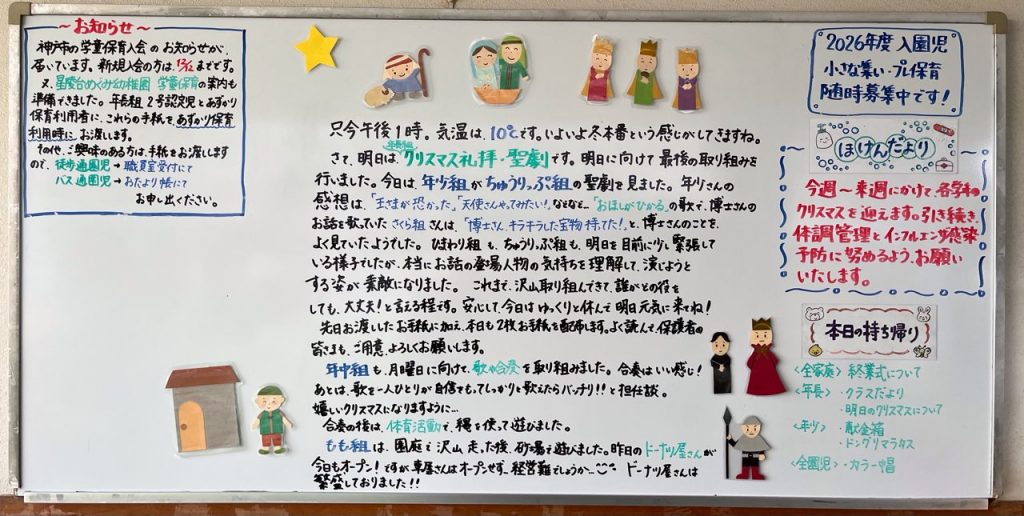 ～お知らせ～
神戸市の学童保育入会のお知らせが、
届いています。新規入会の方は、12/12までです。
又、星陵台めぐみ幼稚園 学童保育の案内も
準備できました。年長組、2号認定児とあずかり
保育利用者に、これらの手紙を、あずかり保育
利用時に、お渡します。
その他、ご興味のある方は、手紙をお渡します
ので、徒歩通園児→職員室受付にて
バス通園児→おたより帳にて
お申し出ください。
只今午後1時。気温は、10℃です。いよいよ冬本番という感じがしてきますね。
さて、明日は、年長組クリスマス礼拝・聖劇です。明日に向けて最後の取り組みを
行いました。今日は、年少組がちゅうりっぷ組の聖劇を見ました。年少さんの
感想は、「王さまが恐かった」、「天使さんやってみたい!」などなど…。「おほしがひかる」の歌で、博士さんの
お話を歌っていた さくら組さんは、「博士さん、キラキラした宝物持てた!」と、博士さんのことを、
よく見ていたようでした。ひまわり組も、ちゅうりっぷ組も、明日を目前に少し緊張して
いる様子でしたが、本当にお話の登場人物の気持ちを理解して、演じようと
する姿が素敵になりました。これまで、沢山取り組んできて、誰がどの役を
しても、大丈夫!と言える程です。安心して、今日はゆっくりと休んで明日元気に来てね!
先日お渡ししたお手紙に加え、本日も2枚お手紙を配布します。よく読んで、保護者の
皆さまも、ご用意、よろしくお願いします。
年中組も、月曜日に向けて、歌や合奏を取り組みました。合奏はいい感じ!
あとは、歌を一人ひとりが自信をもってしっかりと歌えたらバッチリ!!と担任談。
嬉しいクリスマスになりますように…
合奏の後は、体育活動で、縄を使って遊びました。
もも組は、園庭で沢山走った後、砂場で遊びました。昨日のドーナツ屋さんが
今日もオープン!ですが、車屋さんはオープンせず、経営難でしょうか… ドーナツ屋さんは
繁盛しておりました!!
2026年度 入園児
小さな集い・プレ保育
随時募集中です!
ほけんだより
今週～来週にかけて、各学年の
クリスマスを迎えます。引き続き、
体調管理とインフルエンザ感染
予防に努めるよう、お願い
いたします。
本日の持ち帰り
〈全家庭〉終業式について
〈年長〉・クラスだより
・明日のクリスマスについて
〈年少〉・献金箱
・ドングリマラカス
〈全園児〉・カラー帽